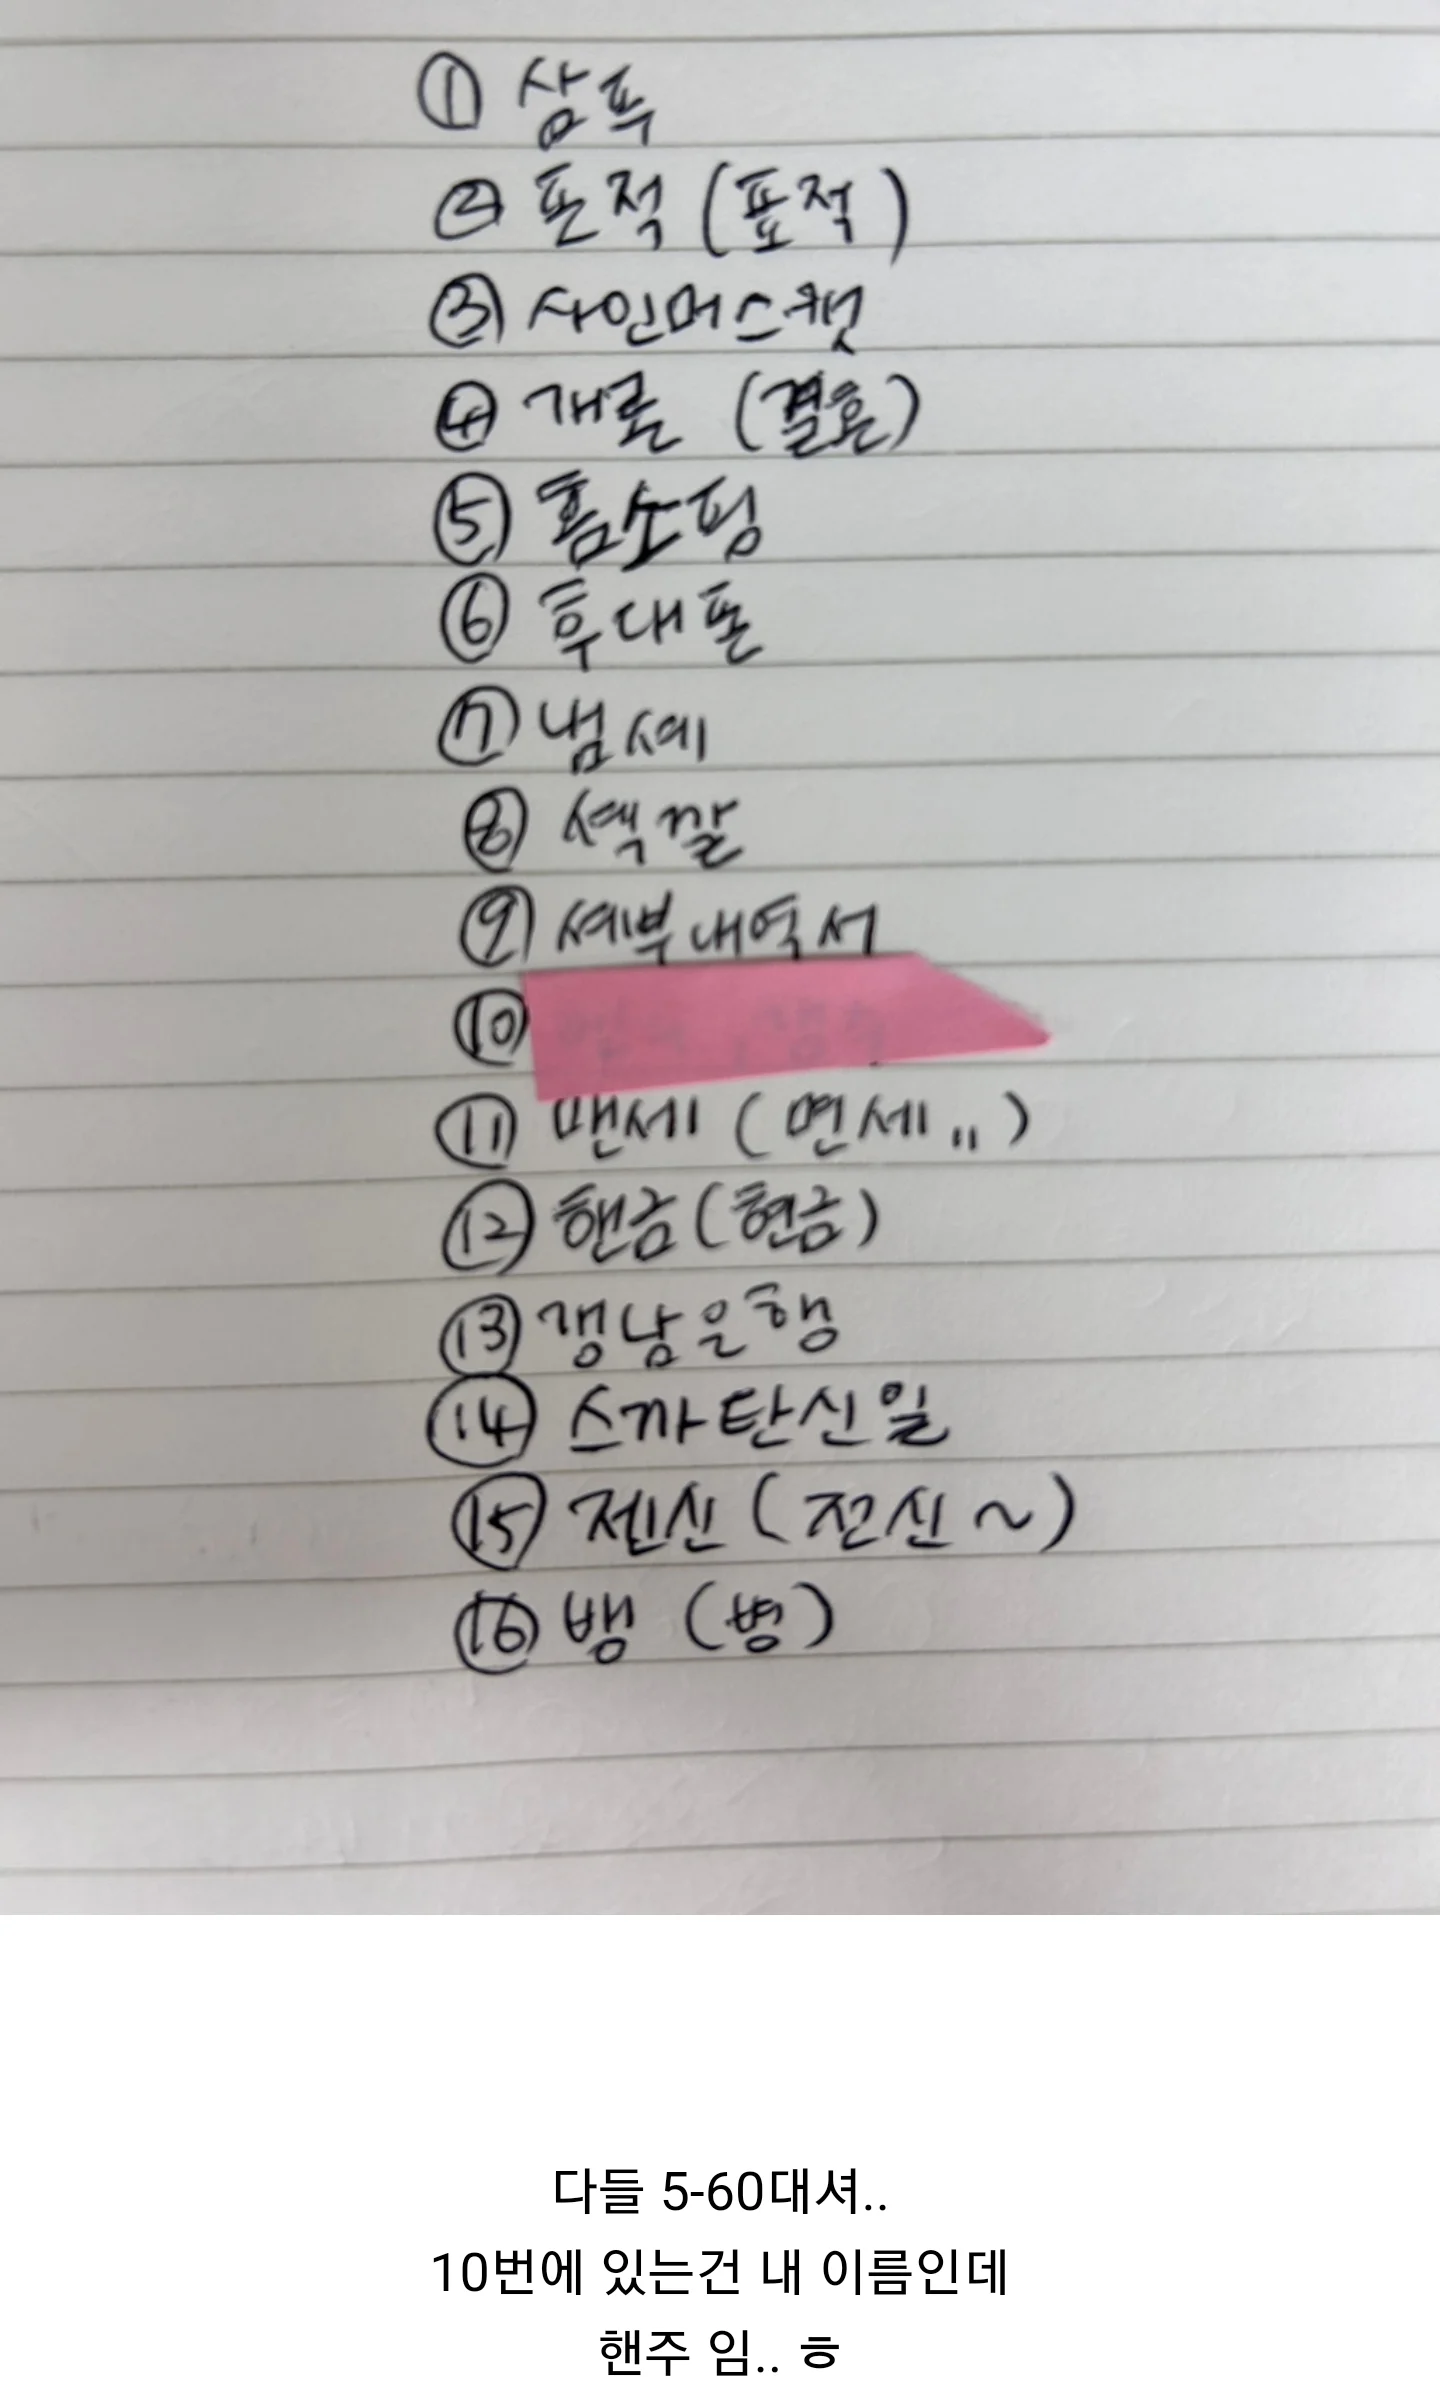 ① 삼푸
② 폰적 (표적)
③ 사인머스캣
④ 개론 (결혼)
⑤ 홈소핑
⑥ 후대폰
⑦ 냄셰
⑧ 셱깔
⑨ 셰부내역서
⑩
⑪ 맨세 (면세..)
⑫ 핸금 (현금)
⑬ 갱남은행
⑭ 스까탄신일
⑮ 젠신 (전신~)
⑯ 뱅 (병)
다들 5-60대셔..
10번에 있는건 내 이름인데
핸주 임.. ㅎ